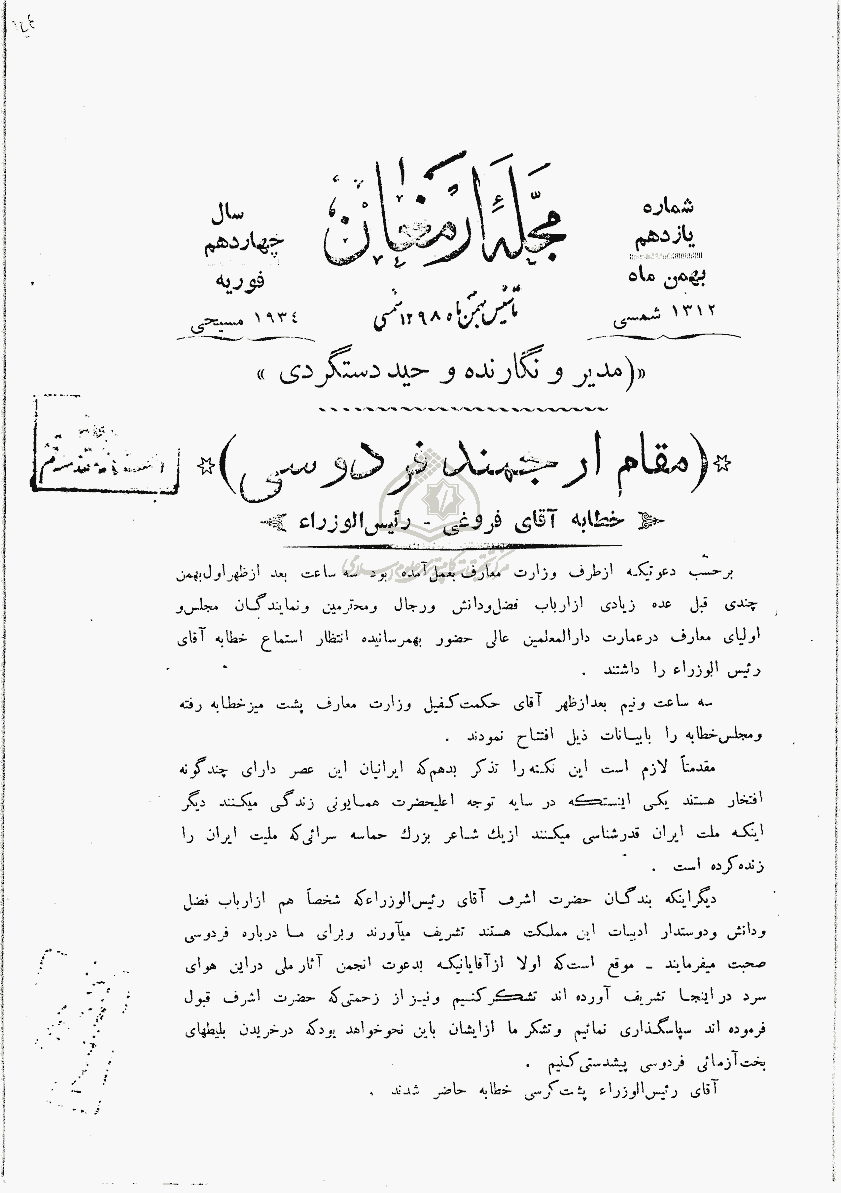 مجلهٔ ارمغان
شماره
یازدهم
بهمن ماه
۱۳۱۲ شمسی
سال
چهاردهم
فوریه
۱۹۳٤ مسیحی
تأسیس بهمن ماه ۱۲۹۸ شمسی
«(مدیر و نگارنده وحید دستگردی»
(مقام ارجمند فردوسی)
خطابه آقای فروغی - رئیس‌الوزراء
برحسب دعوتیکه ازطرف وزارت معارف بعمل‌آمده بود سه ساعت بعد ازظهر اول بهمن
چندی قبل عده زیادی ازارباب فضل‌ودانش ورجال ومحترمین ونمایندگان مجلس‌و
اولیای معارف درعمارت دارالمعلمین عالی حضور بهمرسانیده انتظار استماع خطابه آقای
رئیس الوزراء را داشتند .
سه ساعت ونیم بعدازظهر آقای حکمت‌کفیل وزارت معارف پشت میزخطابه رفته
ومجلس‌خطابه را بابیانات ذیل افتتاح نمودند .
مقدمتاً لازم است این نکته‌را تذکر بدهم‌که ایرانیان این عصر دارای چندگونه
افتخار هستند یکی اینستکه در سایه توجه اعلیحضرت همایونی زندگی میکنند دیگر
اینکه ملت ایران قدرشناسی میکنند ازیك شاعر بزرك حماسه سرائی‌که ملیت ایران را
زنده‌کرده است .
دیگراینکه بندگان حضرت اشرف آقای رئیس‌الوزراءکه شخصاً هم ازارباب فضل
ودانش ودوستدار ادبیات این مملکت هستند تشریف میآورند وبرای ما درباره فردوسی
صحبت میفرمایند - موقع است‌که اولا ازآقایانیکه بدعوت انجمن آثارملی دراین هوای
سرد دراینجا تشریف آورده اند تشکرکنیم ونیزاز زحمتی‌که حضرت اشرف قبول
فرموده اند سپاسگذاری نمائیم وتشکرما ازایشان باین نحوخواهد بودکه درخریدن بلیطهای
بخت‌آزمائی فردوسی پیشدستی‌کنیم .
آقای رئیس‌الوزراء پشت‌کرسی خطابه حاضر شدند .